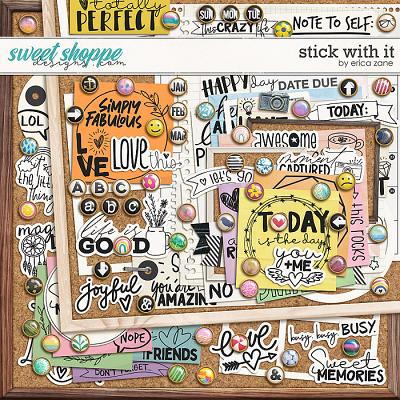 totally
PERFECT
SUN MON TUE
this CRAZY life
NOTE TO SELF:
sweet shoppe
designs .com
stick with it
by erica zane
HAPPY day
DATE DUE
SIMPLY
FABULOUS
LOVE
LOVE this
JAN
FEB
MAR
TODAY:
LOL
awesome
moment
CAPTURED
let's go
the little
things
A B C
a b c
TODAY
is the day
you
+ME
this rocks
life is
GOOD
joyful
you are
AMAZING
&
NO
NOPE
FRIENDS
DON'T FORGET
love
busy, busy, BUSY
Sweet
MEMORIES